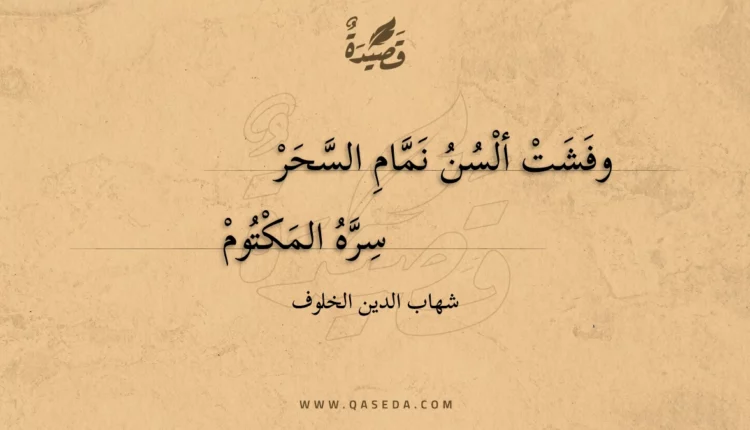 قَصِيْدَةٌ
وفَشَتْ ألْسُنُ نَمَّامِ السَّحَرْ
سِرَّهُ المَكْتُومْ
شهاب الدين الخلوف
WWW.QASEDA.COM